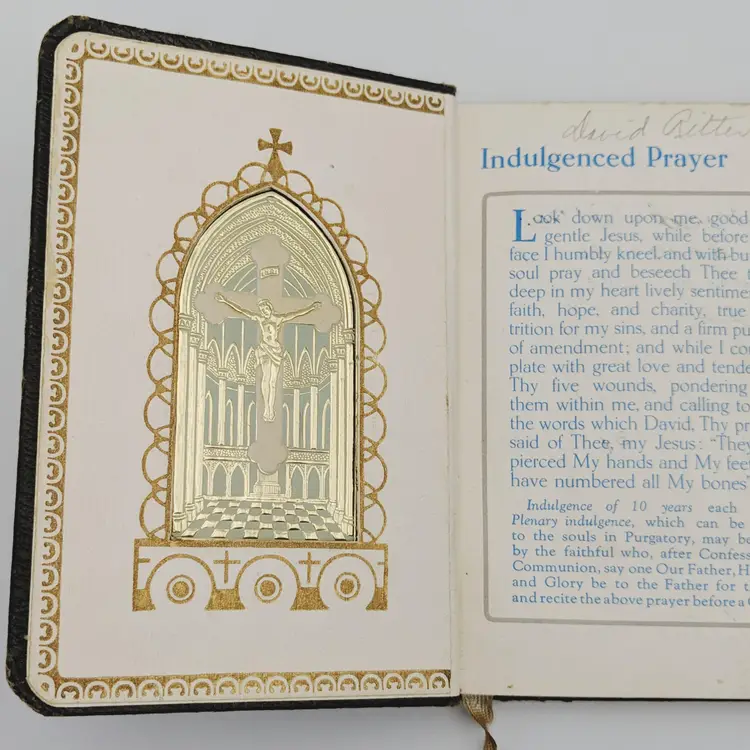 INRI
David Ritten
Indulgenced Prayer
Look down upon me, good
gentle Jesus, while before
face I humbly kneel and with bu
soul pray and beseech Thee
deep in my heart lively sentime
faith, hope, and charity, true
trition for my sins, and a firm pu
of amendment; and while I co
plate with great love and tende
Thy five wounds, pondering
them within me, and calling to
the words which David, Thy pr
said of Thee, my Jesus: "They
pierced My hands and My feet
have numbered all My bones"
Indulgence of 10 years each
Plenary indulgence, which can be
to the souls in Purgatory, may b
by the faithful who, after Confess
Communion, say one Our Father, H
and Glory be to the Father for t
and recite the above prayer before a C